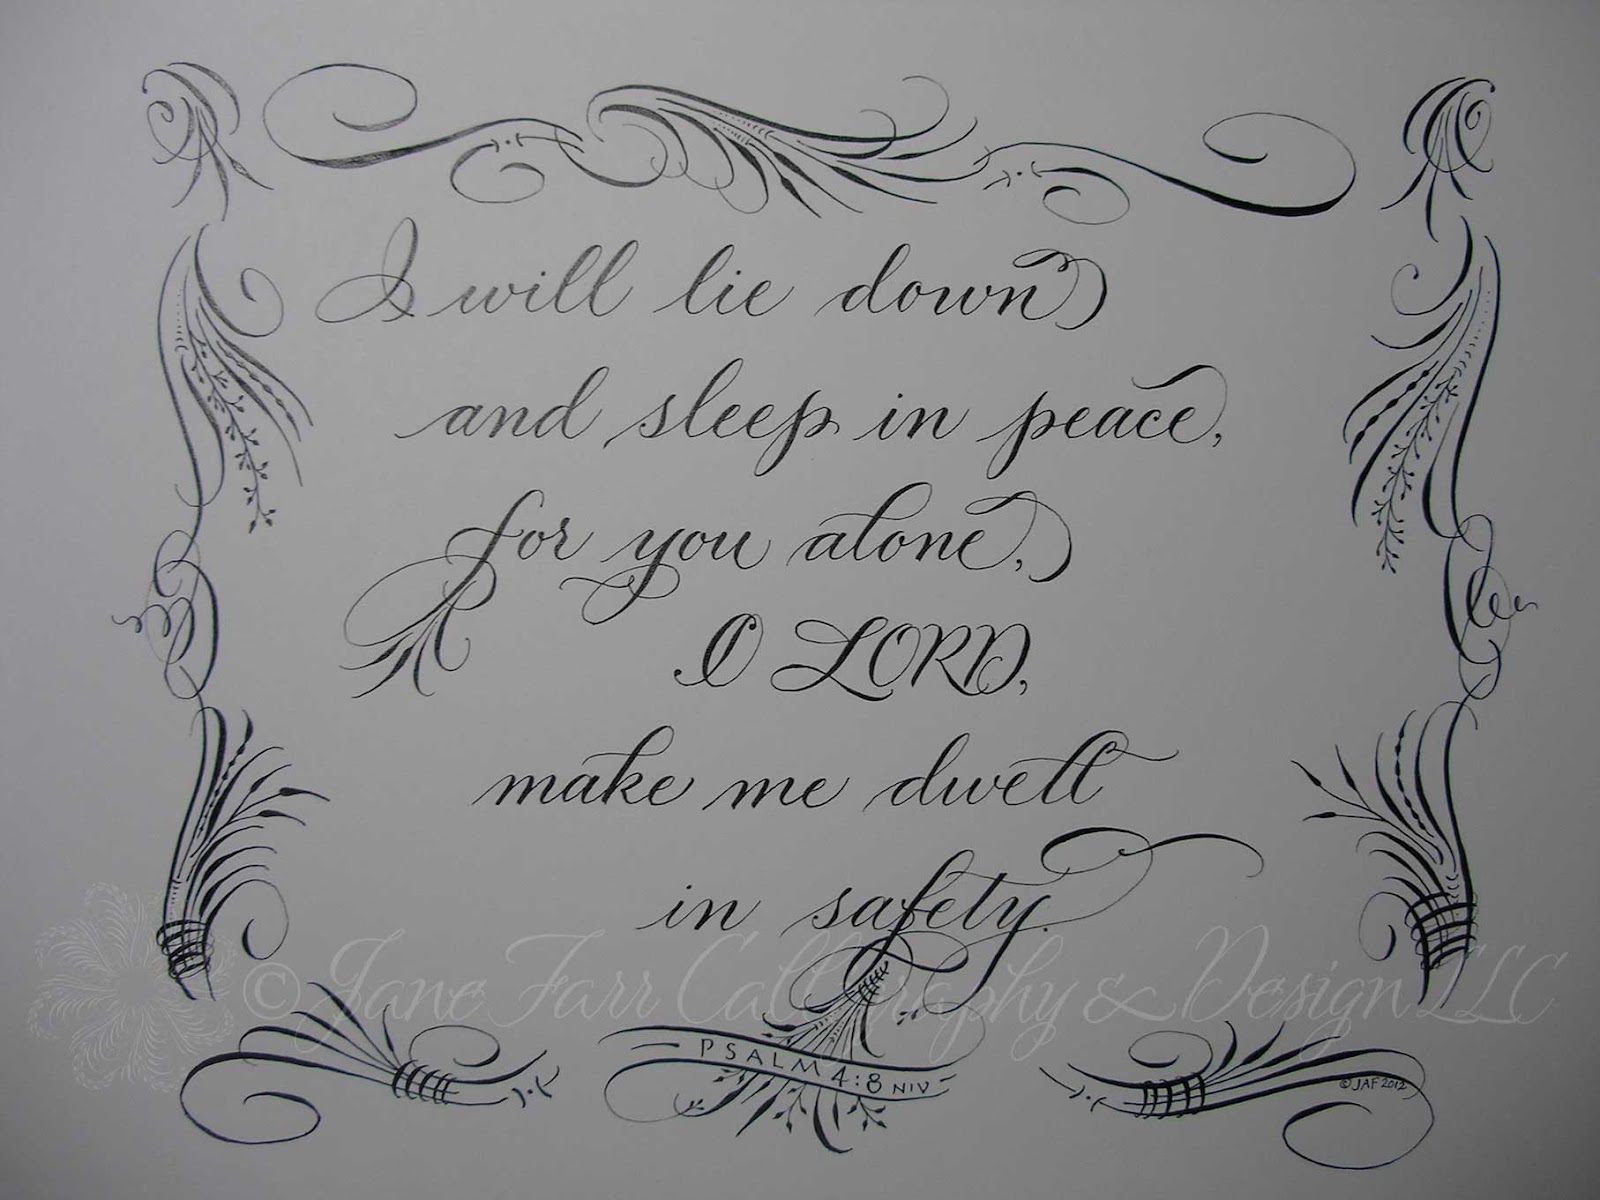 I will lie down
and sleep in peace,
for you alone,
O LORD,
make me dwell
in safety.
© Jane Farr Calligraphy & Design LLC
PSALM 4:8 NIV
© JAF 2012